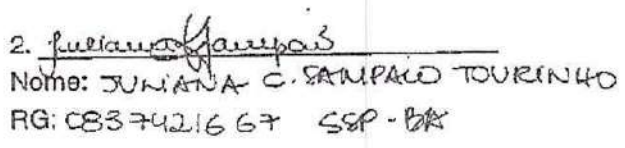 2. Juliana Sampaio
Nome: JULIANA C. SAMPAIO TOURINHO
RG: 0837421667 SSP-BA